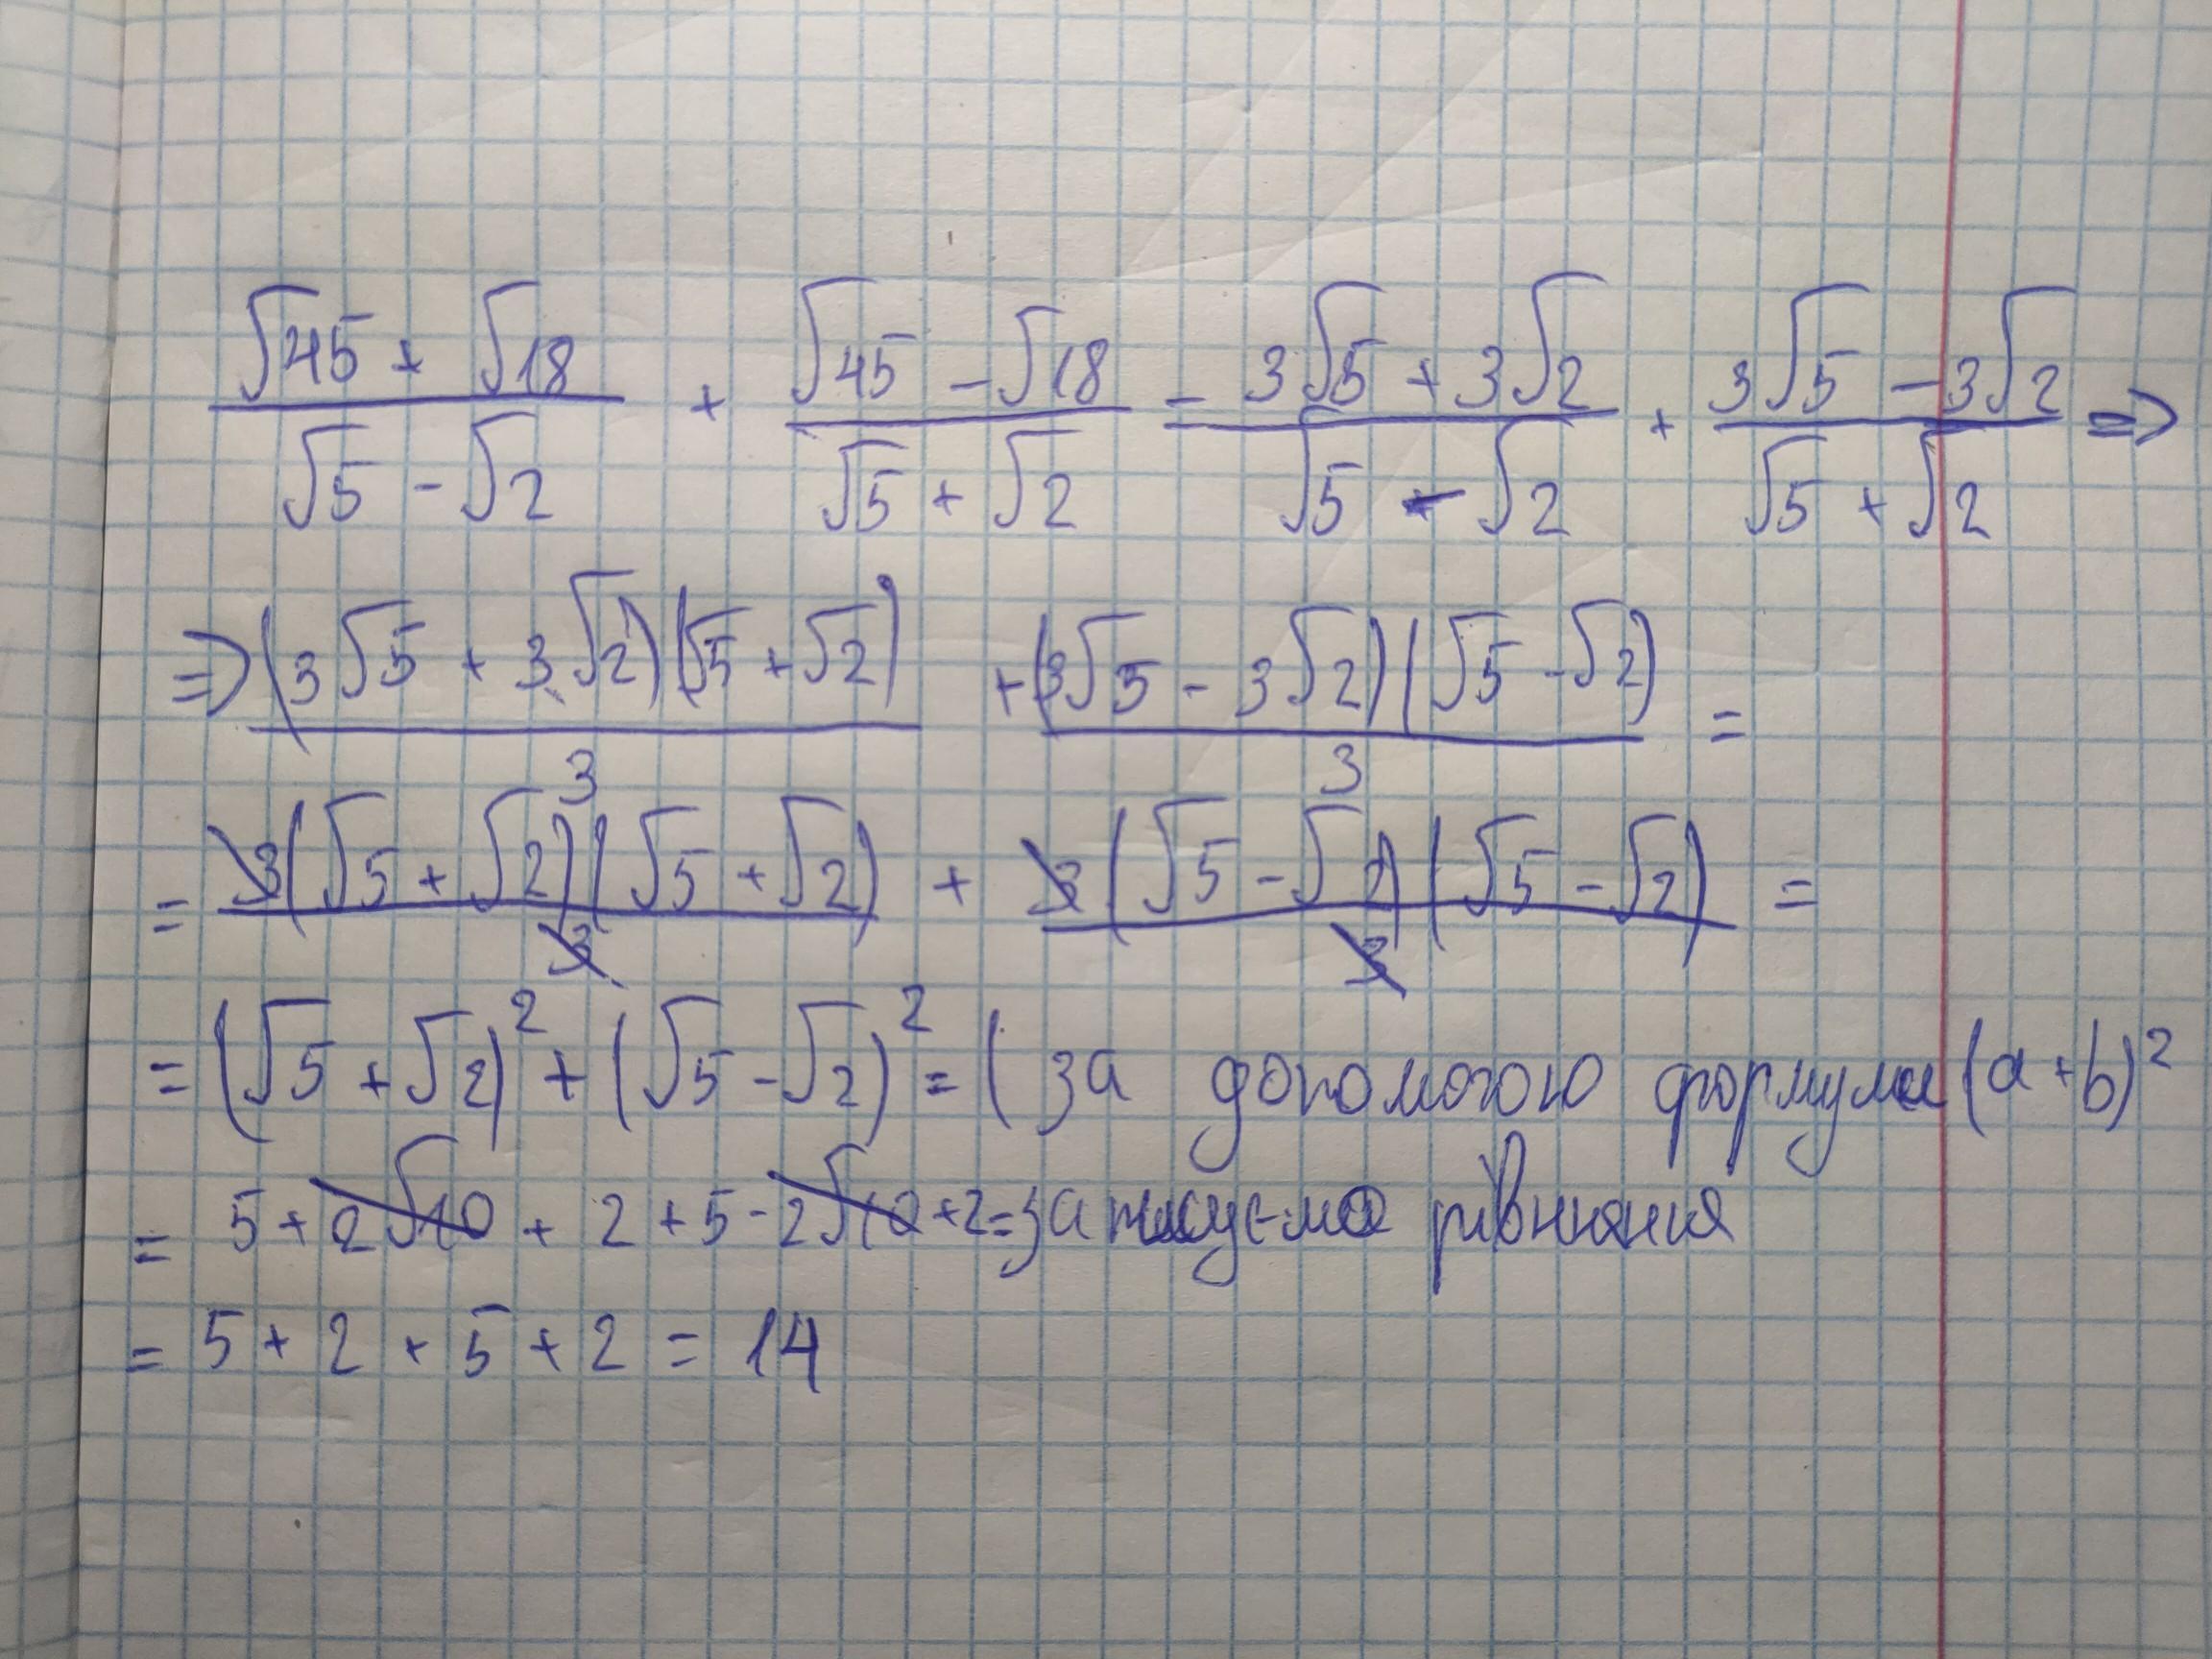 (√45 + √18)/(√5 - √2) + (√45 - √18)/(√5 + √2) = (3√5 + 3√2)/(√5 - √2) + (3√5 - 3√2)/(√5 + √2) =>
=> (3√5 + 3√2)(√5 + √2)/3 + (3√5 - 3√2)(√5 - √2)/3 =
= 3(√5 + √2)(√5 + √2)/3 + 3(√5 - √2)(√5 - √2)/3 =
= (√5 + √2)² + (√5 - √2)² = (за допомогою формули (a+b)²
= 5 + 2√10 + 2 + 5 - 2√10 + 2 = записуємо рівняння
= 5 + 2 + 5 + 2 = 14